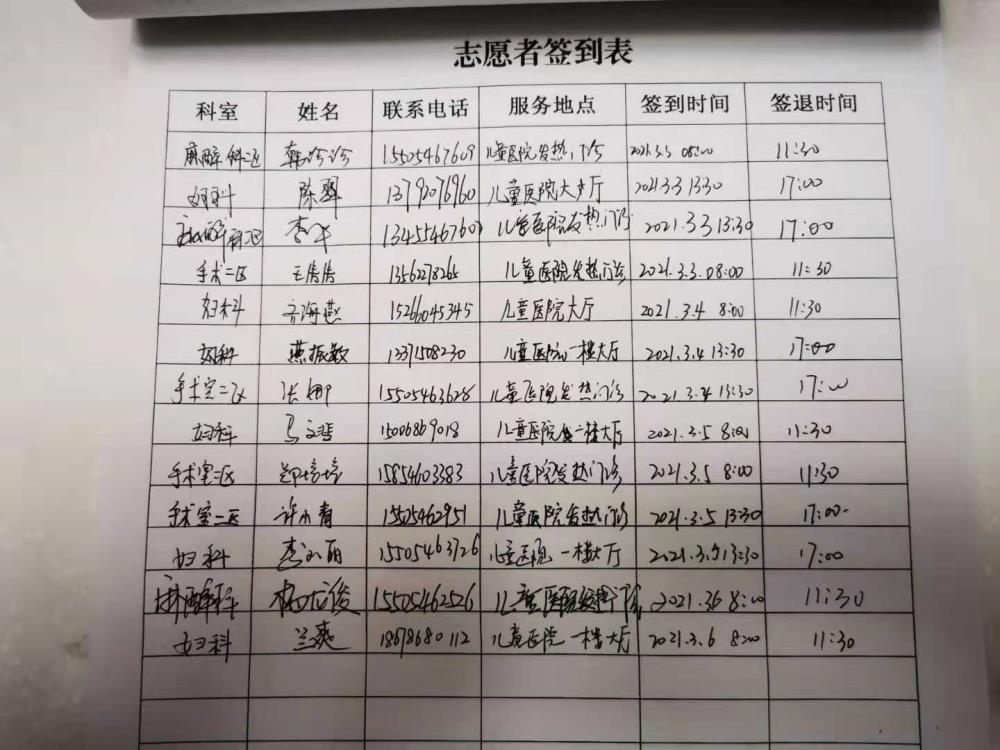 志愿者签到表
科室 姓名 联系电话 服务地点 签到时间 签退时间
麻醉科二区 韩诊诊 15505467609 儿童医院发热门诊 2021.3.3 08:00 11:30
妇科 陈 13792076960 儿童医院大厅 2021.3.3 13:30 17:00
麻醉科二区 李 13455467607 儿童医院发热门诊 2021.3.3 13:30 17:00
手术二区 王倩倩 1356278265 儿童医院发热门诊 2021.3.3.08:00 11:30
妇科 齐海燕 15266045345 儿童医院大厅 2021.3.4 8:00 11:30
妇科 燕振敏 13371508230 儿童医院一楼大厅 2021.3.4 13:30 17:00
手术室二区 张娜 15505463628 儿童医院发热门诊 2021 3.4 13:30 17:00
妇科 马文 15006869018 儿童医院一楼大厅 2021.3.5 8:00 11:30
手术室二区 郑培培 15854603383 儿童医院发热门诊 2021.3.5 8:00 11:30
手术室二区 许小青 15505462951 儿童医院发热门诊 2021.3.5 13:30 17:00
妇科 李丽 15505463726 儿童医院一楼大厅 2021.3.5 13:30 17:00
麻醉科 杨龙俊 15505462526 儿童医院发热门诊 2021.3.6 8:00 11:30
妇科 兰爽 18678680112 儿童医院一楼大厅 2021.3.6 8:00 11:30